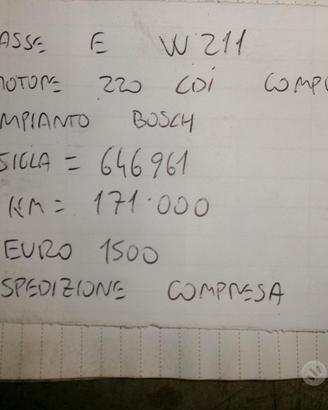 ASSE E W211
MOTORE 220 CDI COMPL
MPIANTO BOSCH
SIGLA = 646961
KM = 171.000
EURO 1500
SPEDIZIONE COMPRESA